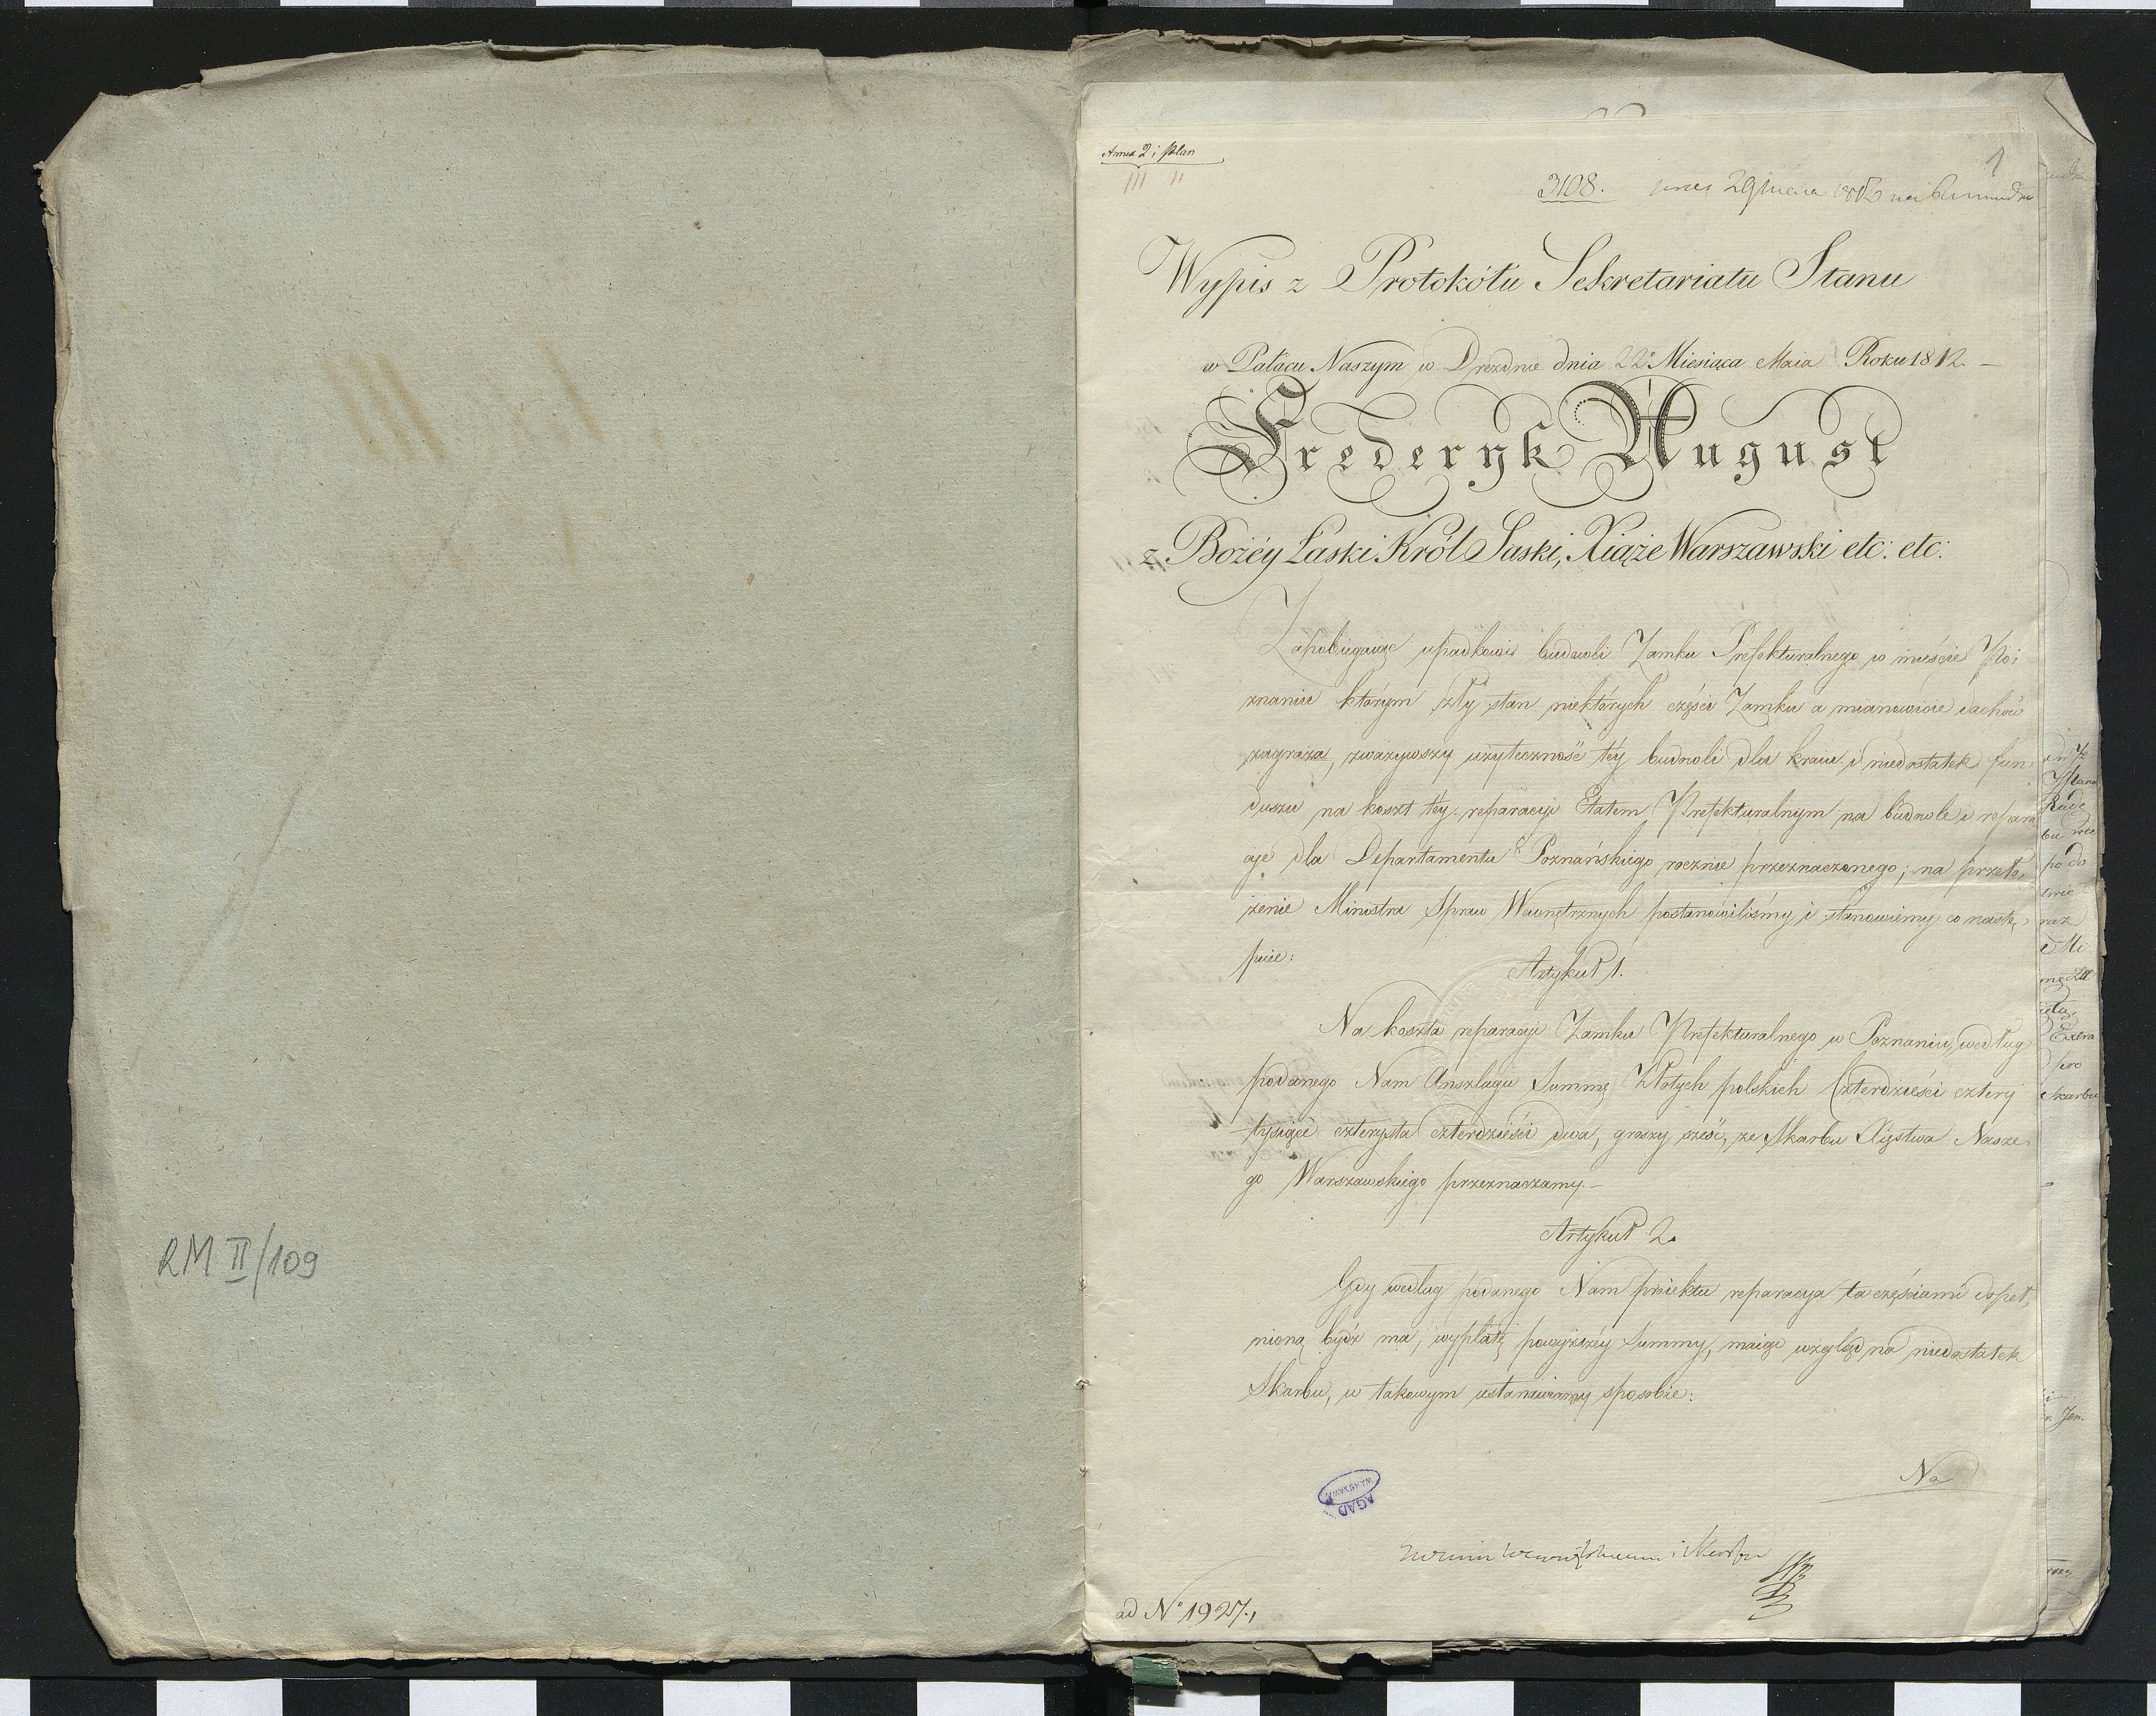 RM II/109
Annex 2 i plan
1
3108.
Wypis z Protokółu Sekretariatu Stanu
w Pałacu Naszym w Dreznie dnia 22° Miesiąca Maia Roku 1812. –
Fryderyk August
z Bożéy Łaski Król Saski, Xiąże Warszawski etc: etc:
Zapobiegaiąc upadkowi budowli Zamku Prefekturalnego w mieście Po:
znaniu którym zły stan niektórych części Zamku a mianowicie dachów
zagraża, zważywszy użyteczność téy budowli dla kraiu i niedostatek fun:
duszu na koszt téy reparacyi Etatem Prefekturalnym na budowle i repara
cye dla Departamentu Poznańskiego rocznie przeznaczonego; na przeło,
żenie Ministra Spraw Wewnętrznych postanowiliśmy i stanowiemy co nastę,
puie:
Artykuł 1.
Na koszta reparacyi Zamku Prefekturalnego w Poznaniu, według
podanego Nam Anszlagu Summę Złotych polskich Czterdzieści cztery
tysiące czterysta czterdzieści dwa, groszy sześć, ze Skarbu Xięstwa Nasze,
go Warszawskiego przeznaczamy. –
Artykuł 2.
Gdy według podanego Nam proiektu reparacya ta częściami dopeł,
nioną bydź ma, wypłatę powyższéy Summy, maiąc wzgląd na niedostatek
Skarbu, w takowym ustanawiamy sposobie:
Na
AGAD
WARSZAWA
ad N° 1927.,